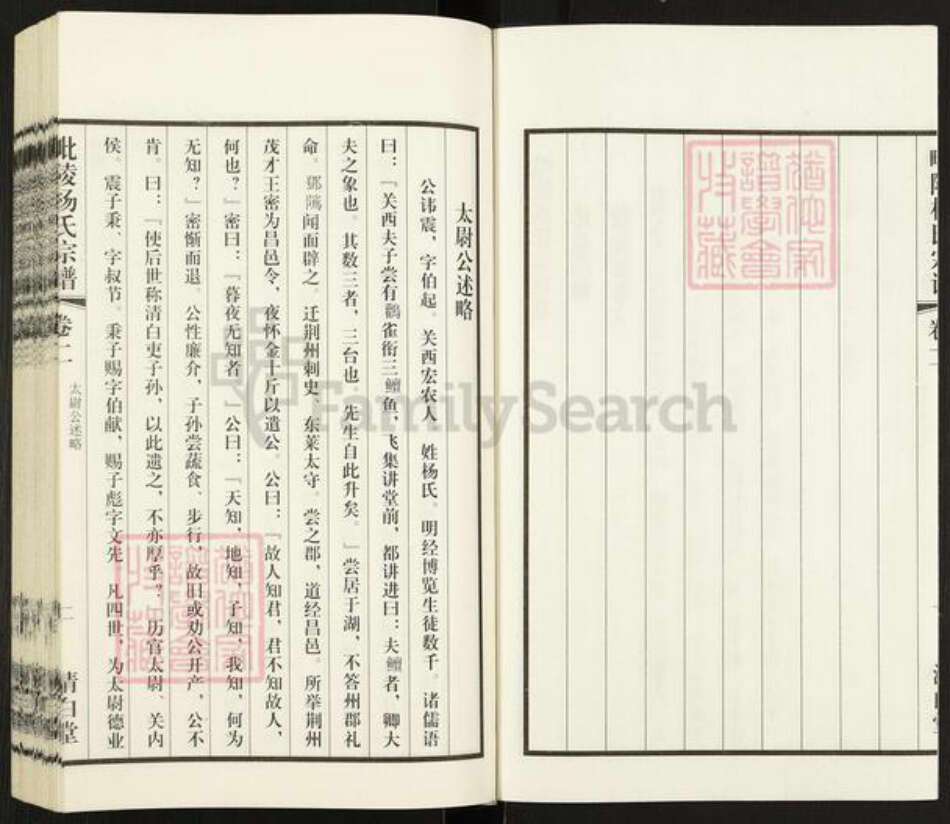 太尉公述略
公讳震，字伯起。关西宏农人，姓杨氏。明经博览生徒数千。诸儒语
曰：「关西夫子尝有鹳雀衔三鳣鱼，飞集讲堂前，都讲进曰：夫鳣者，卿大
夫之象也。其数三者，三台也。先生自此升矣。」尝居于湖，不答州郡礼
命。邓隲闻而辟之。迁荆州刺史、东莱太守。尝之郡，道经昌邑。所举荆州
茂才王密为昌邑令，夜怀金十斤以遗公。公曰：「故人知君，君不知故人，
何也？」密曰：「暮夜无知者。」公曰：「天知，地知，子知，我知，何为
无知？」密惭而退。公性廉介，子孙尝蔬食、步行，故旧或劝公开产，公不
肯。曰：「使后世称清白吏子孙，以此遗之，不亦厚乎？」历官太尉、关内
侯。震子秉、字叔节。秉子赐字伯献，赐子彪字文先。凡四世，为太尉德业
毗陵杨氏宗谱 卷二
太尉公述略
二
清白堂
FamilySearch